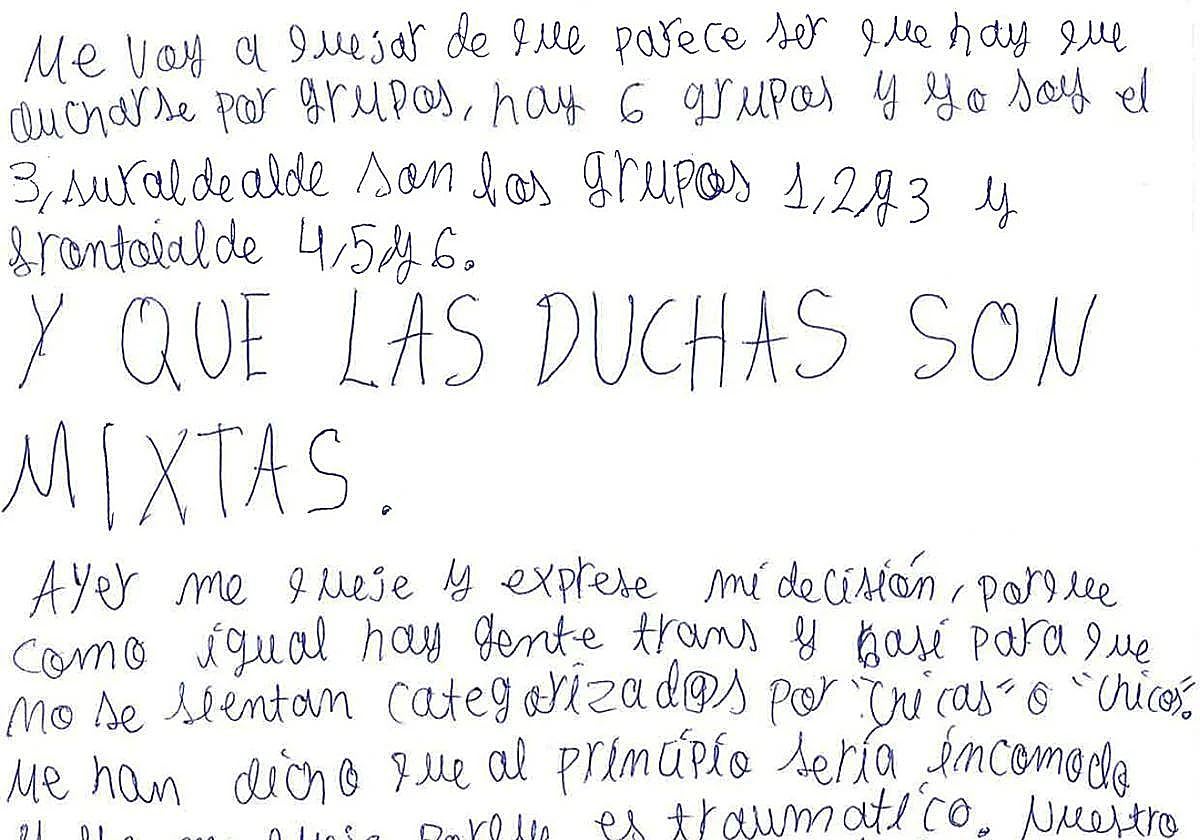 Me voy a quejar de que parece ser que hay que
ducharse por grupos, hay 6 grupos y yo soy el
3, suraldealde son los grupos 1,2y3 y
frontoialde 4,5y6.
Y QUE LAS DUCHAS SON
MIXTAS.
Ayer me queje y exprese mi decisión, porque
como igual hay gente trans y asi para que
no se sientan categorizad@s por "chicas" o "chicos".
Me han dicho que al principio sería incomodo
porque es traumatico. Nuestro